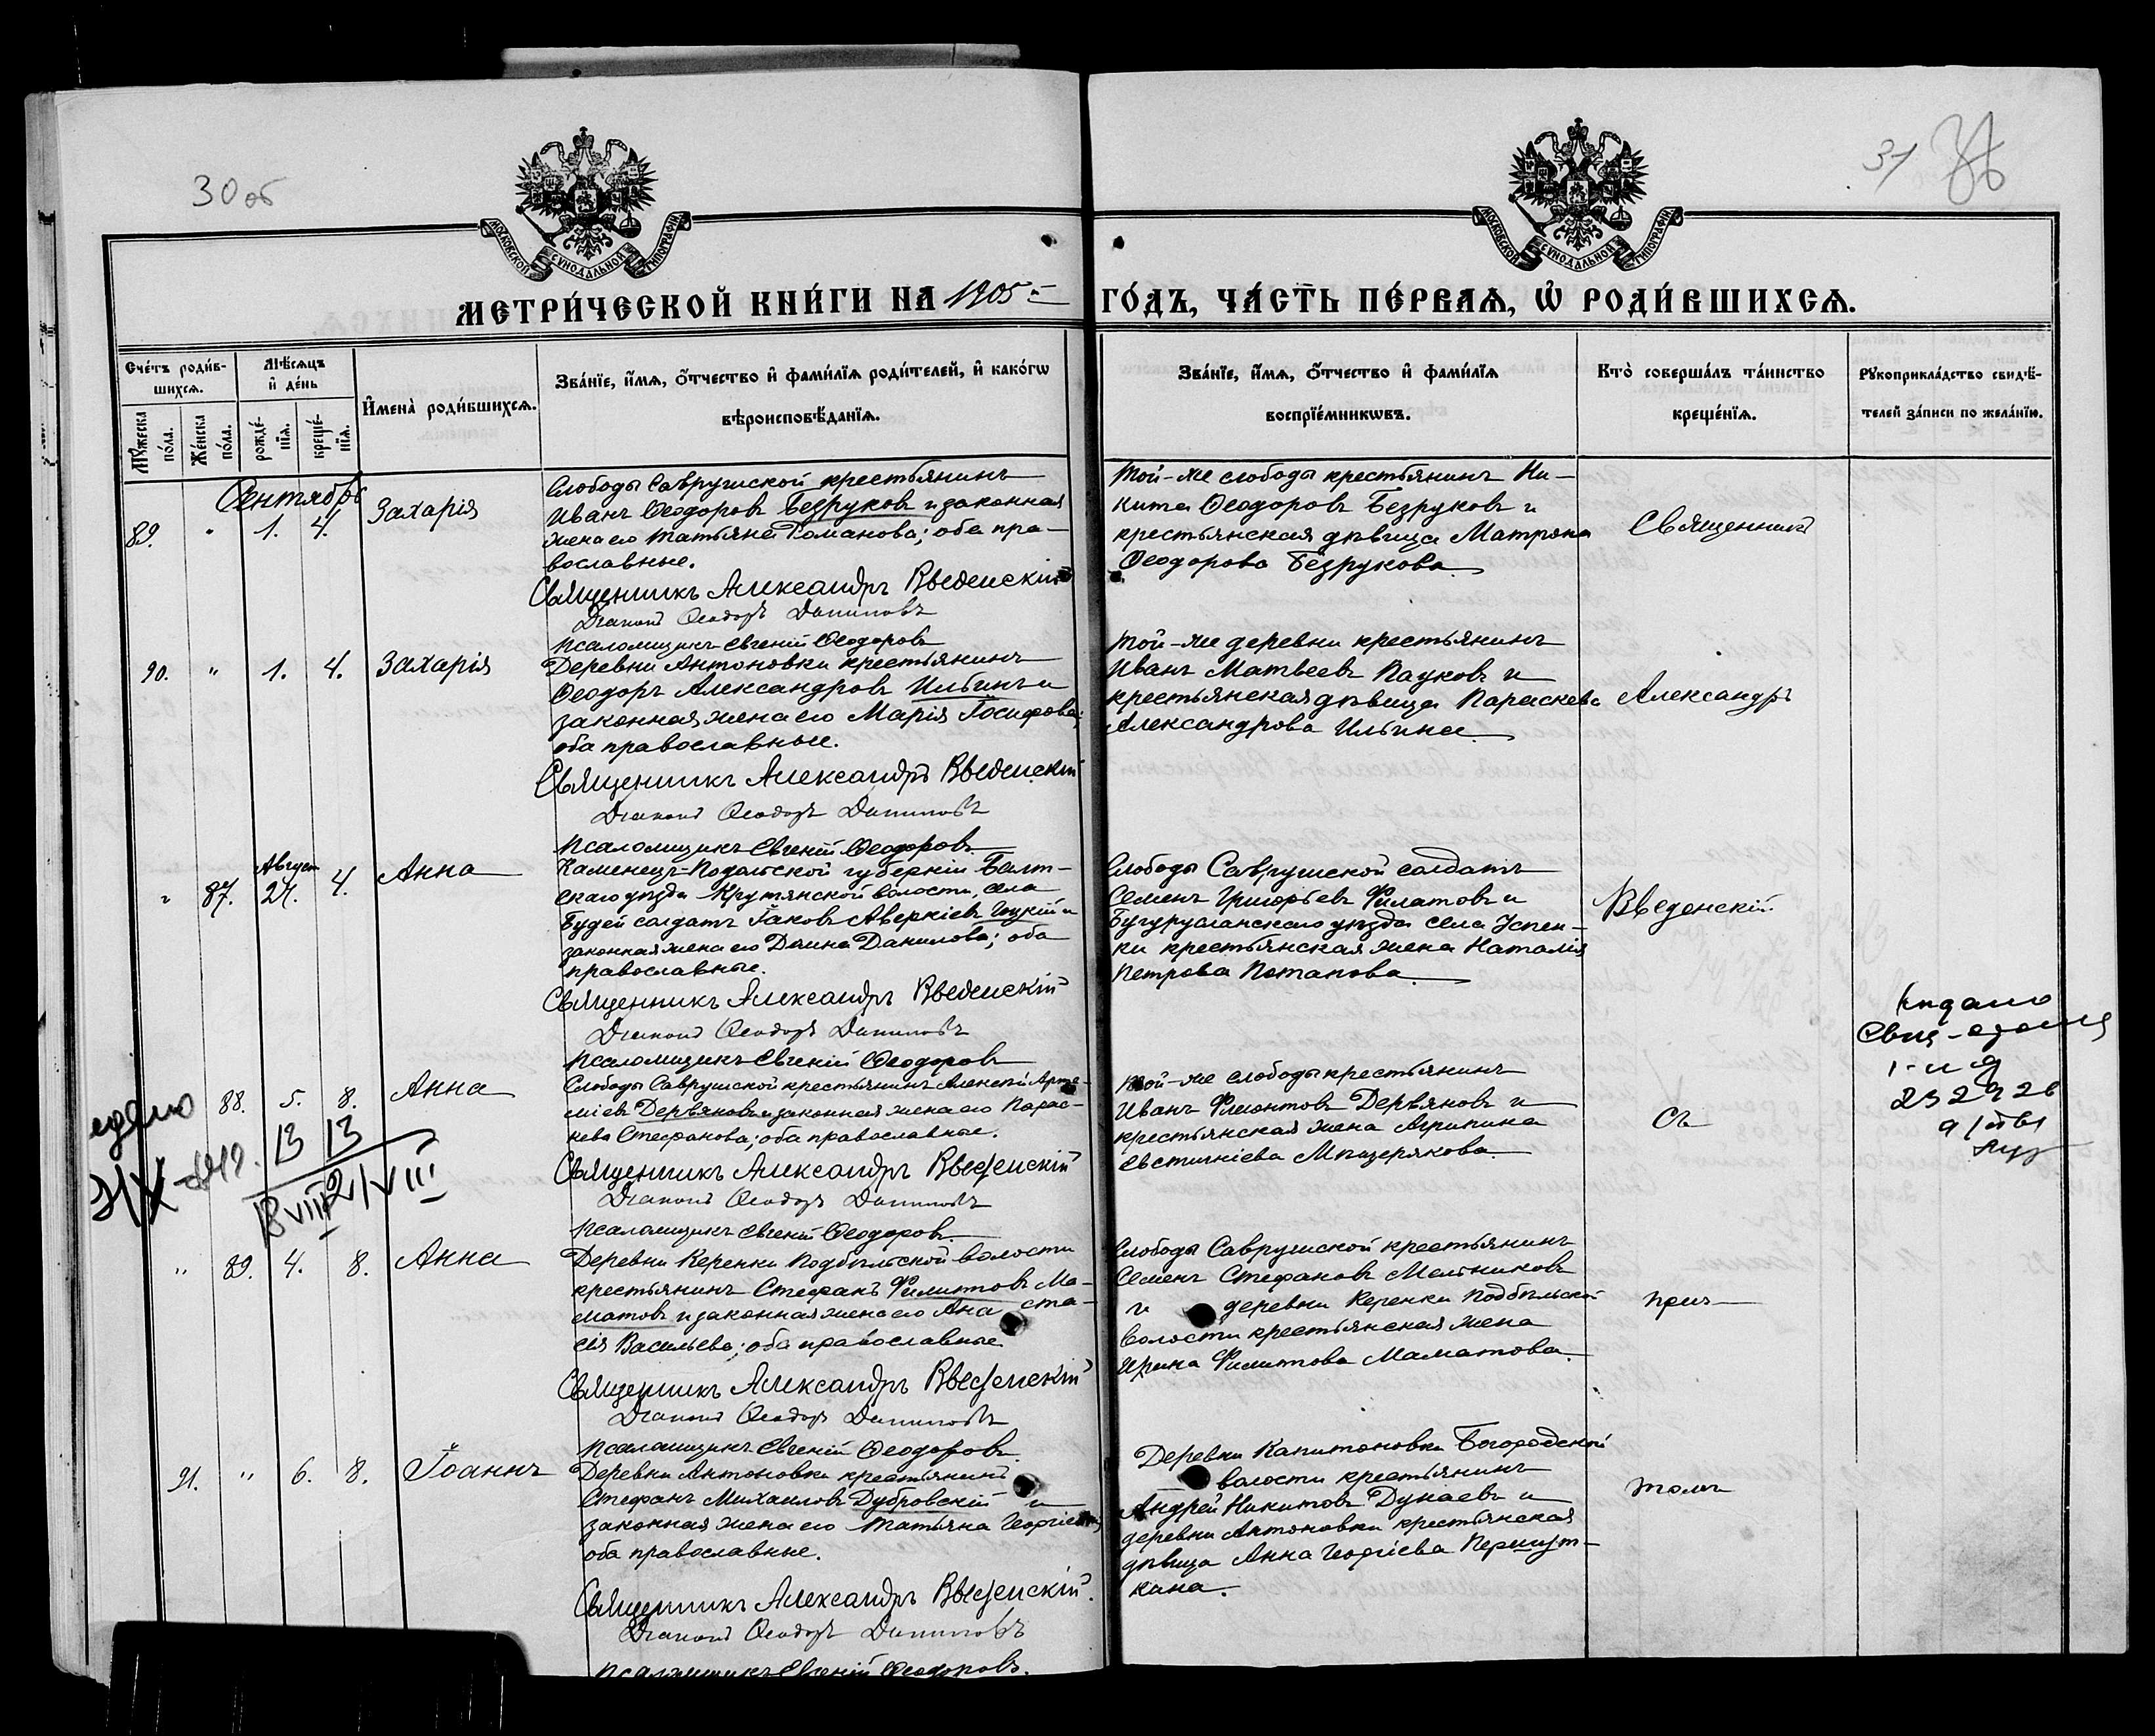 30 об
31
МОСКОВСКОЙ СѴНОДАЛЬНОЙ ТИПОГРАФІИ
МОСКОВСКОЙ СѴНОДАЛЬНОЙ ТИПОГРАФІИ
МЕТРИ́ЧЕСКОЙ КНИ́ГИ НА 1905 ГО́ДЪ, ЧА́СТЬ ПЕ́РВАѦ, Ѡ҆ РОДИ́ВШИХСѦ.
Сче́тъ роди́в-
шихсѧ.
Мꙋ́жеска
по́ла.
Же́нска
по́ла.
Мѣ́сѧцъ
и҆ де́нь
рожде́-
нїѧ.
креще́-
нїѧ.
И҆мена̀ роди́вшихсѧ.
Зва́нїе, и҆́мѧ, ѻ҆́тчество и҆ фами́лїѧ роди́телей, и҆ како́гѡ
вѣроисповѣ́данїѧ.
Зва́нїе, и҆́мѧ, ѻ҆́тчество и҆ фами́лїѧ
воспрїе́мникѡвъ.
Кто̀ соверша́лъ та́инство
креще́нїѧ.
Рꙋкоприкла́дство свидѣ́-
телей за́писи по жела́нїю.
Сентябрь
89. " 1. 4. Захарія
Слободы Саврушской крестьянинъ
Иванъ Ѳеодоровъ Безруковъ и законная
жена его Татьяна Романова; оба пра-
вославные.
Священникъ Александръ Введенскій
Діаконъ Ѳеодоръ Даниловъ
Псаломщикъ Евгеній Ѳеодоровъ
Той-же слободы крестьянинъ Ни-
кита Ѳеодоровъ Безруковъ и
крестьянская дѣвица Матрона
Ѳеодорова Безрукова
Священникъ
90. " 1. 4. Захарія
Деревни Антоновки крестьянинъ
Ѳеодоръ Александровъ Ильинъ и
законная жена его Марія Іосифова;
оба православные.
Священникъ Александръ Введенскій
Діаконъ Ѳеодоръ Даниловъ
Псаломщикъ Евгеній Ѳеодоровъ
Той-же деревни крестьянинъ
Иванъ Матвеевъ Пауковъ и
крестьянская дѣвица Параскева
Александрова Ильина
Александръ
Август
" 87. 24. 4. Анна
Каменецъ-Подольской губерніи Балт-
скаго уѣзда Крутянской волости, села
Будей солдатъ Іаковъ Аверкіевъ и
законная жена его Данилова; оба
православные.
Священникъ Александръ Введенскій
Діаконъ Ѳеодоръ Даниловъ
Псаломщикъ Евгеній Ѳеодоровъ
Слободы Саврушской солдатъ
Семенъ Григорьевъ Филатовъ и
Бугурусланскаго уѣзда села Успен-
ки крестьянская жена Наталія
Петрова Потапова
Введенскій
88. 5. 8. Анна
13 13
Слободы Саврушской крестьянинъ Алексѣй Арте-
міевъ Дервяновъ и законная жена его Парас-
кева Стефанова; оба православные.
Священникъ Александръ Введенскій
Діаконъ Ѳеодоръ Даниловъ
Псаломщикъ Евгеній Ѳеодоровъ
Той-же слободы крестьянинъ
Иванъ Дервяновъ и
крестьянская жена Агрипина
Евстигніева
съ
" 89. 4. 8. Анна
Деревни Керенки Подбѣльской волости
крестьянинъ Стефанъ Филитовъ Ма-
матовъ и законная жена его Ана ста-
сія Васильева; оба православные
Священникъ Александръ Введенскій
Діаконъ Ѳеодоръ Даниловъ
Псаломщикъ Евгеній Ѳеодоровъ
Слободы Саврушской крестьянинъ
Семенъ Стефановъ Мельниковъ
и деревни Керенки Подбѣльской
волости крестьянская жена
Ирина Филитова Маматова
прич-
91. " 6. 8. Іоаннъ
Деревни Антоновки крестьянинъ
Стефанъ Михаиловъ Дубровскій и
законная жена его Татьяна Георгіева;
оба православные.
Священникъ Александръ Введенскій
Діаконъ Ѳеодоръ Даниловъ
Псаломщикъ Евгеній Ѳеодоровъ.
Деревни Капитоновки Богородской
волости крестьянинъ
Андрей Никитовъ Дунаевъ и
деревни Антоновки крестьянская
дѣвица Анна Георгіева Першут-
кина.
томъ